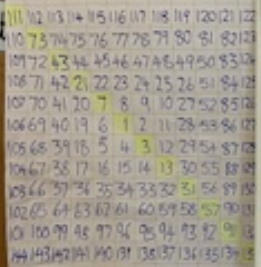 111 112 113 114 115 116 117 118 119 120 121 122
110 73 74 75 76 77 78 79 80 81 82 123
109 72 43 44 45 46 47 48 49 50 83 124
108 71 42 21 22 23 24 25 26 51 84 125
107 70 41 20 7 8 9 10 27 52 85 126
106 69 40 19 6 1 2 11 28 53 86 127
105 68 39 18 5 4 3 12 29 54 87 128
104 67 38 17 16 15 14 13 30 55 88 129
103 66 37 36 35 34 33 32 31 56 89 130
102 65 64 63 62 61 60 59 58 57 90
101 100 99 98 97 96 95 94 93 92 91
144 143 142 141 140 139 138 137 136 135 134